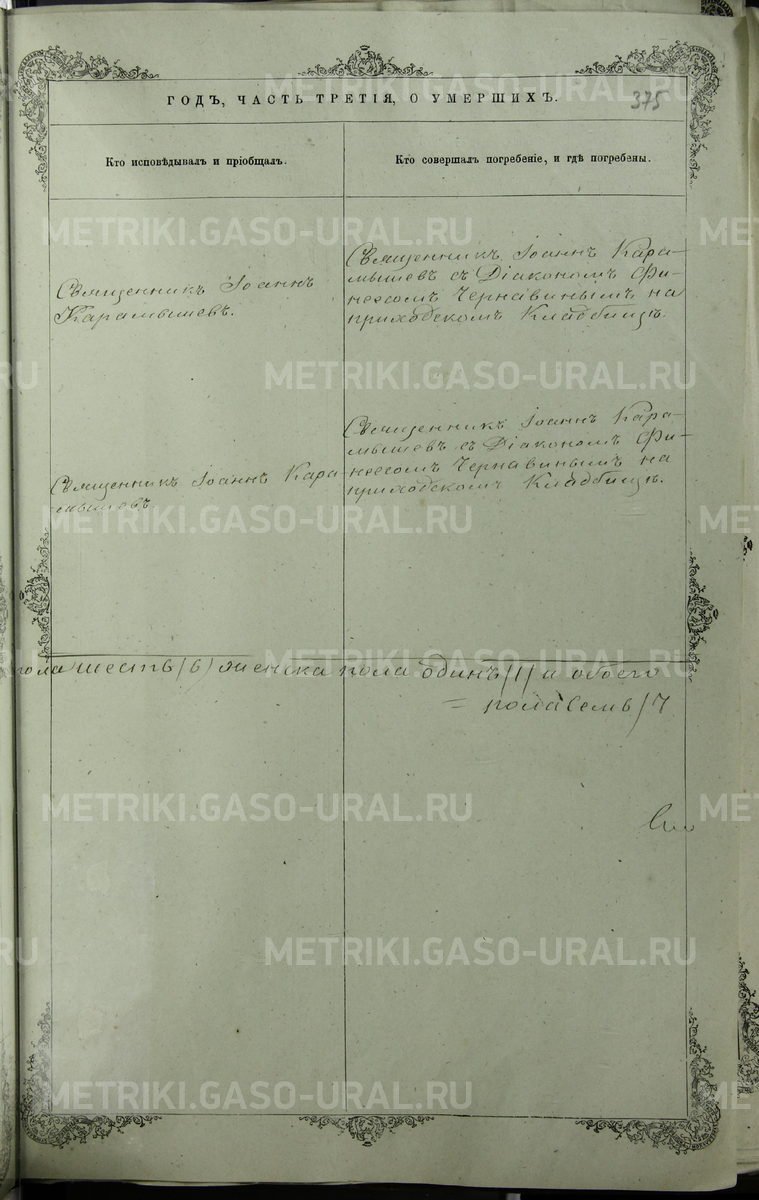 ГОДЪ, ЧАСТЬ ТРЕТІЯ, О УМЕРШИХЪ.
375
Кто исповѣдывалъ и пріобщалъ.
Кто совершалъ погребеніе, и гдѣ погребены.
Священникъ Іоаннъ
Карамышевъ.
Священникъ Іоаннъ Кара-
мышевъ съ Діакономъ Фи-
неесомъ Чернавинымъ на
приходскомъ Кладбищѣ.
Священникъ Іоаннъ Кара-
мышевъ.
Священникъ Іоаннъ Кара-
мышевъ съ Діакономъ Фи-
неесомъ Чернавинымъ на
приходскомъ Кладбищѣ.
пола шесть /6/ женска пола одинъ /1/ и обоего
= пола семь /7
METRIKI.GASO-URAL.RU
METRIKI.GASO-URAL.RU
METRIKI.GASO-URAL.RU
METRIKI.GASO-URAL.RU
METRIKI.GASO-URAL.RU
METRIKI.GASO-URAL.RU
METRIKI.GASO-URAL.RU
METRIKI.GASO-URAL.RU